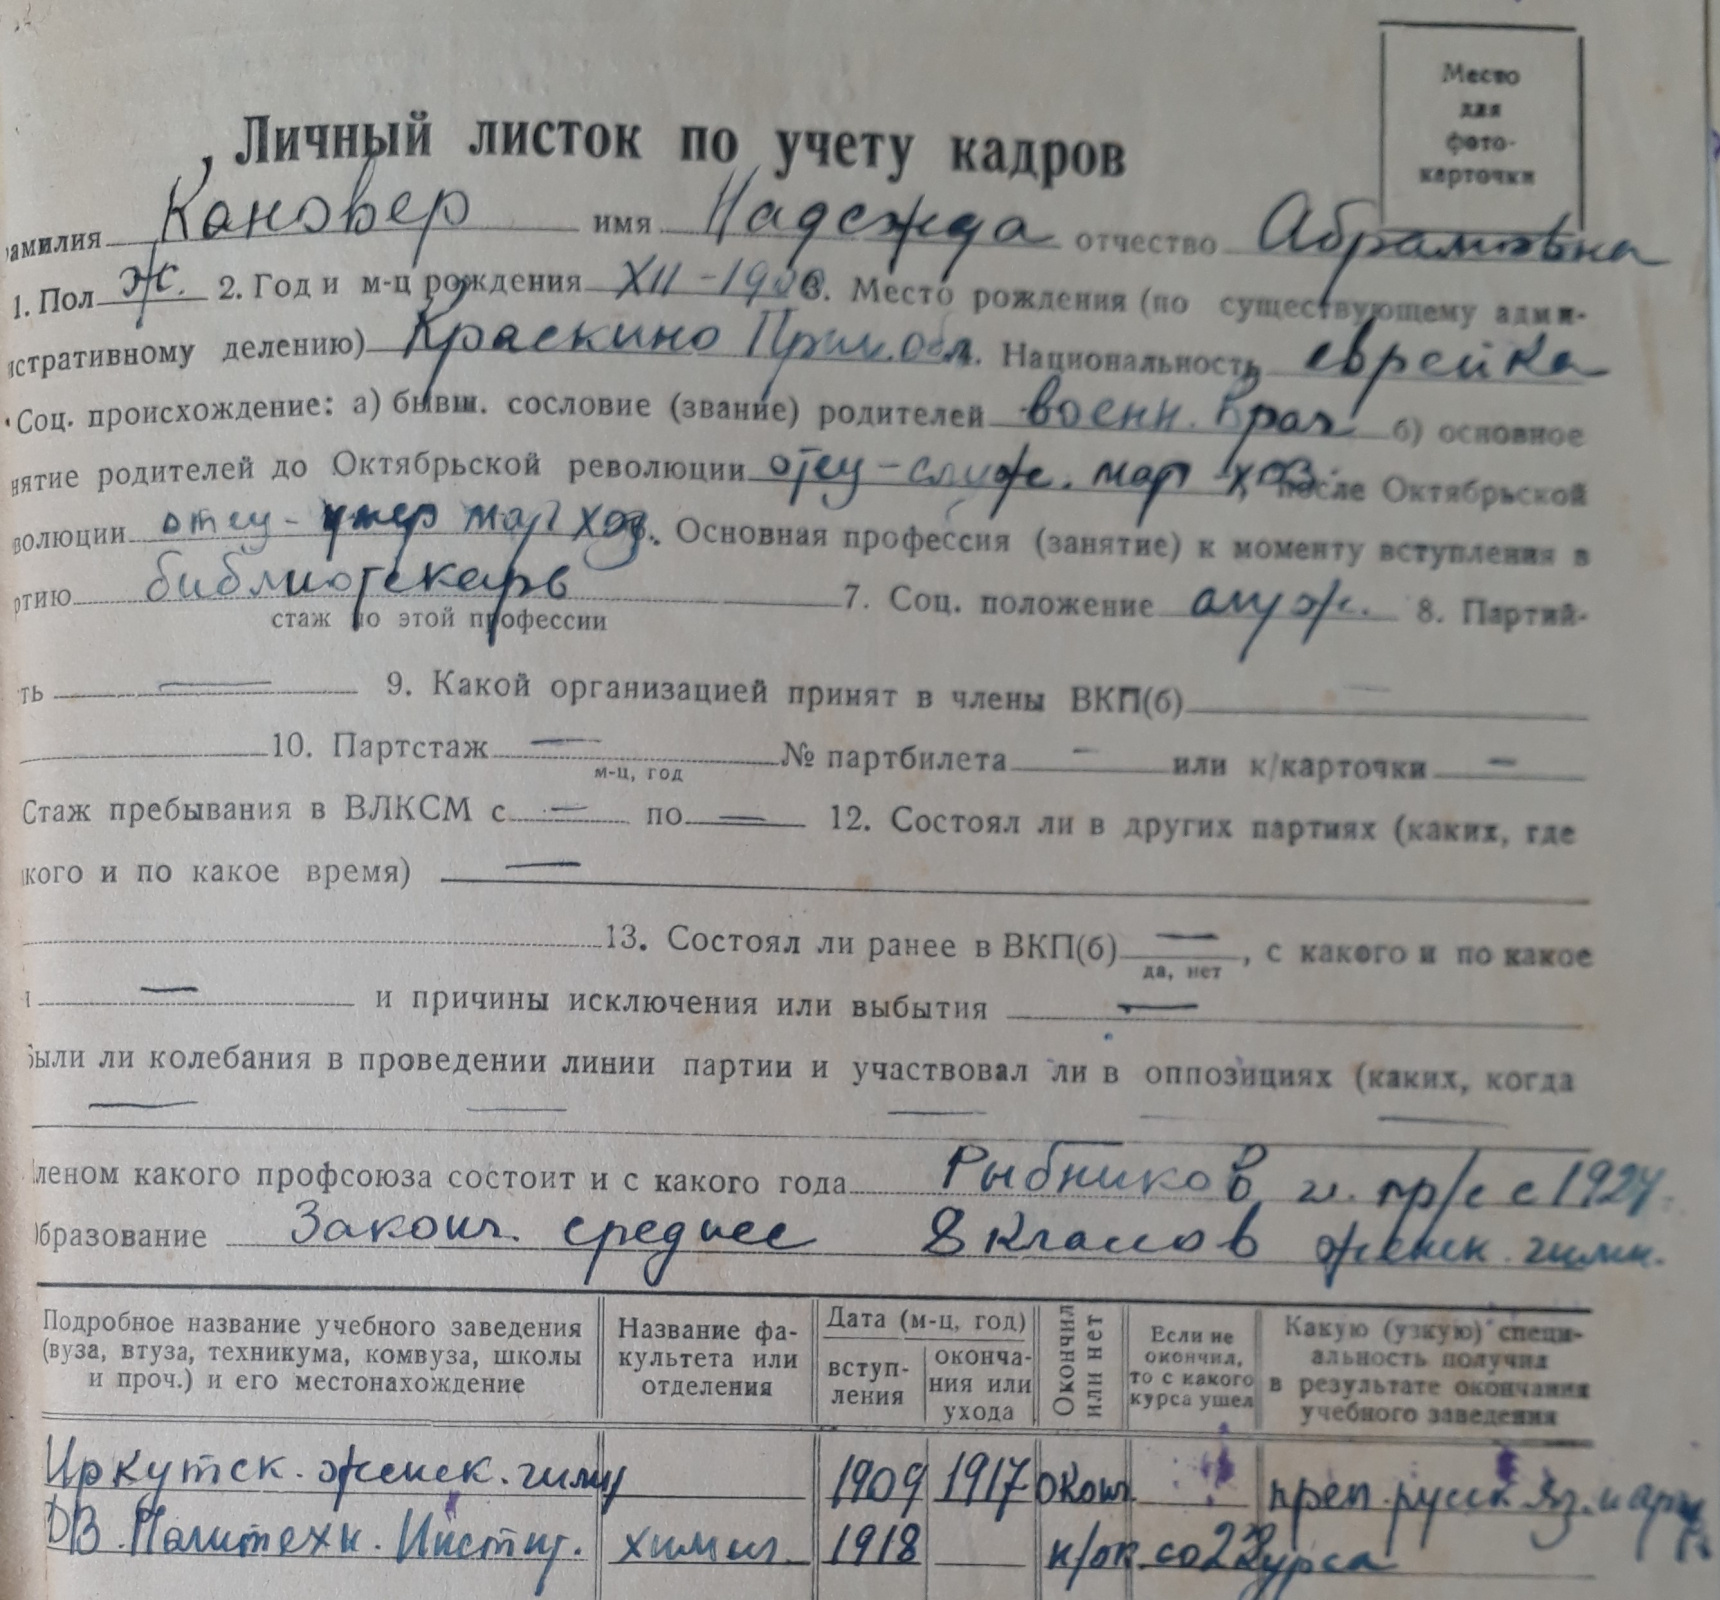 Место
для
фото-
карточки
Личный листок по учету кадров
амилия Кановер имя Надежда отчество Абрамовна
1. Пол ж. 2. Год и м-ц рождения XII-1900 3. Место рождения (по существующему админ-
истративному делению) Краскино Прим. обл. Национальность еврейка
Соц. происхождение: а) бывш. сословие (звание) родителей военн. врач б) основное
нятие родителей до Октябрьской революции отец-служ. мат хоз после Октябрьской
волюции отец-умер мат хоз. Основная профессия (занятие) к моменту вступления в
ртию библиотекарь 7. Соц. положение служ. 8. Партий-
стаж по этой профессии
ть — 9. Какой организацией принят в члены ВКП(б) —
10. Партстаж — № партбилета — или к/карточки —
м-ц, год
Стаж пребывания в ВЛКСМ с — по — 12. Состоял ли в других партиях (каких, где
кого и по какое время) —
13. Состоял ли ранее в ВКП(б) —, с какого и по какое
да, нет
— и причины исключения или выбытия —
были ли колебания в проведении линии партии и участвовал ли в оппозициях (каких, когда
— — — — —
леном какого профсоюза состоит и с какого года Рыбников чл. пр/с с 1924
бразование Законч. среднее 8 классов женск. гимн.
Подробное название учебного заведения (вуза, втуза, техникума, комвуза, школы и проч.) и его местонахождение
Название фа-культета или отделения
Дата (м-ц, год)
вступ-ления
оконча-ния или ухода
Окончил или нет
Если не окончил, то с какого курса ушел
Какую (узкую) специ-альность получил в результате окончания учебного заведения
Иркутск. женск. гимн 1909 1917 окон — преп. русск яз. и
ДВ. Политехн. Инстит. химич. 1918 — н/ок со 2 курса